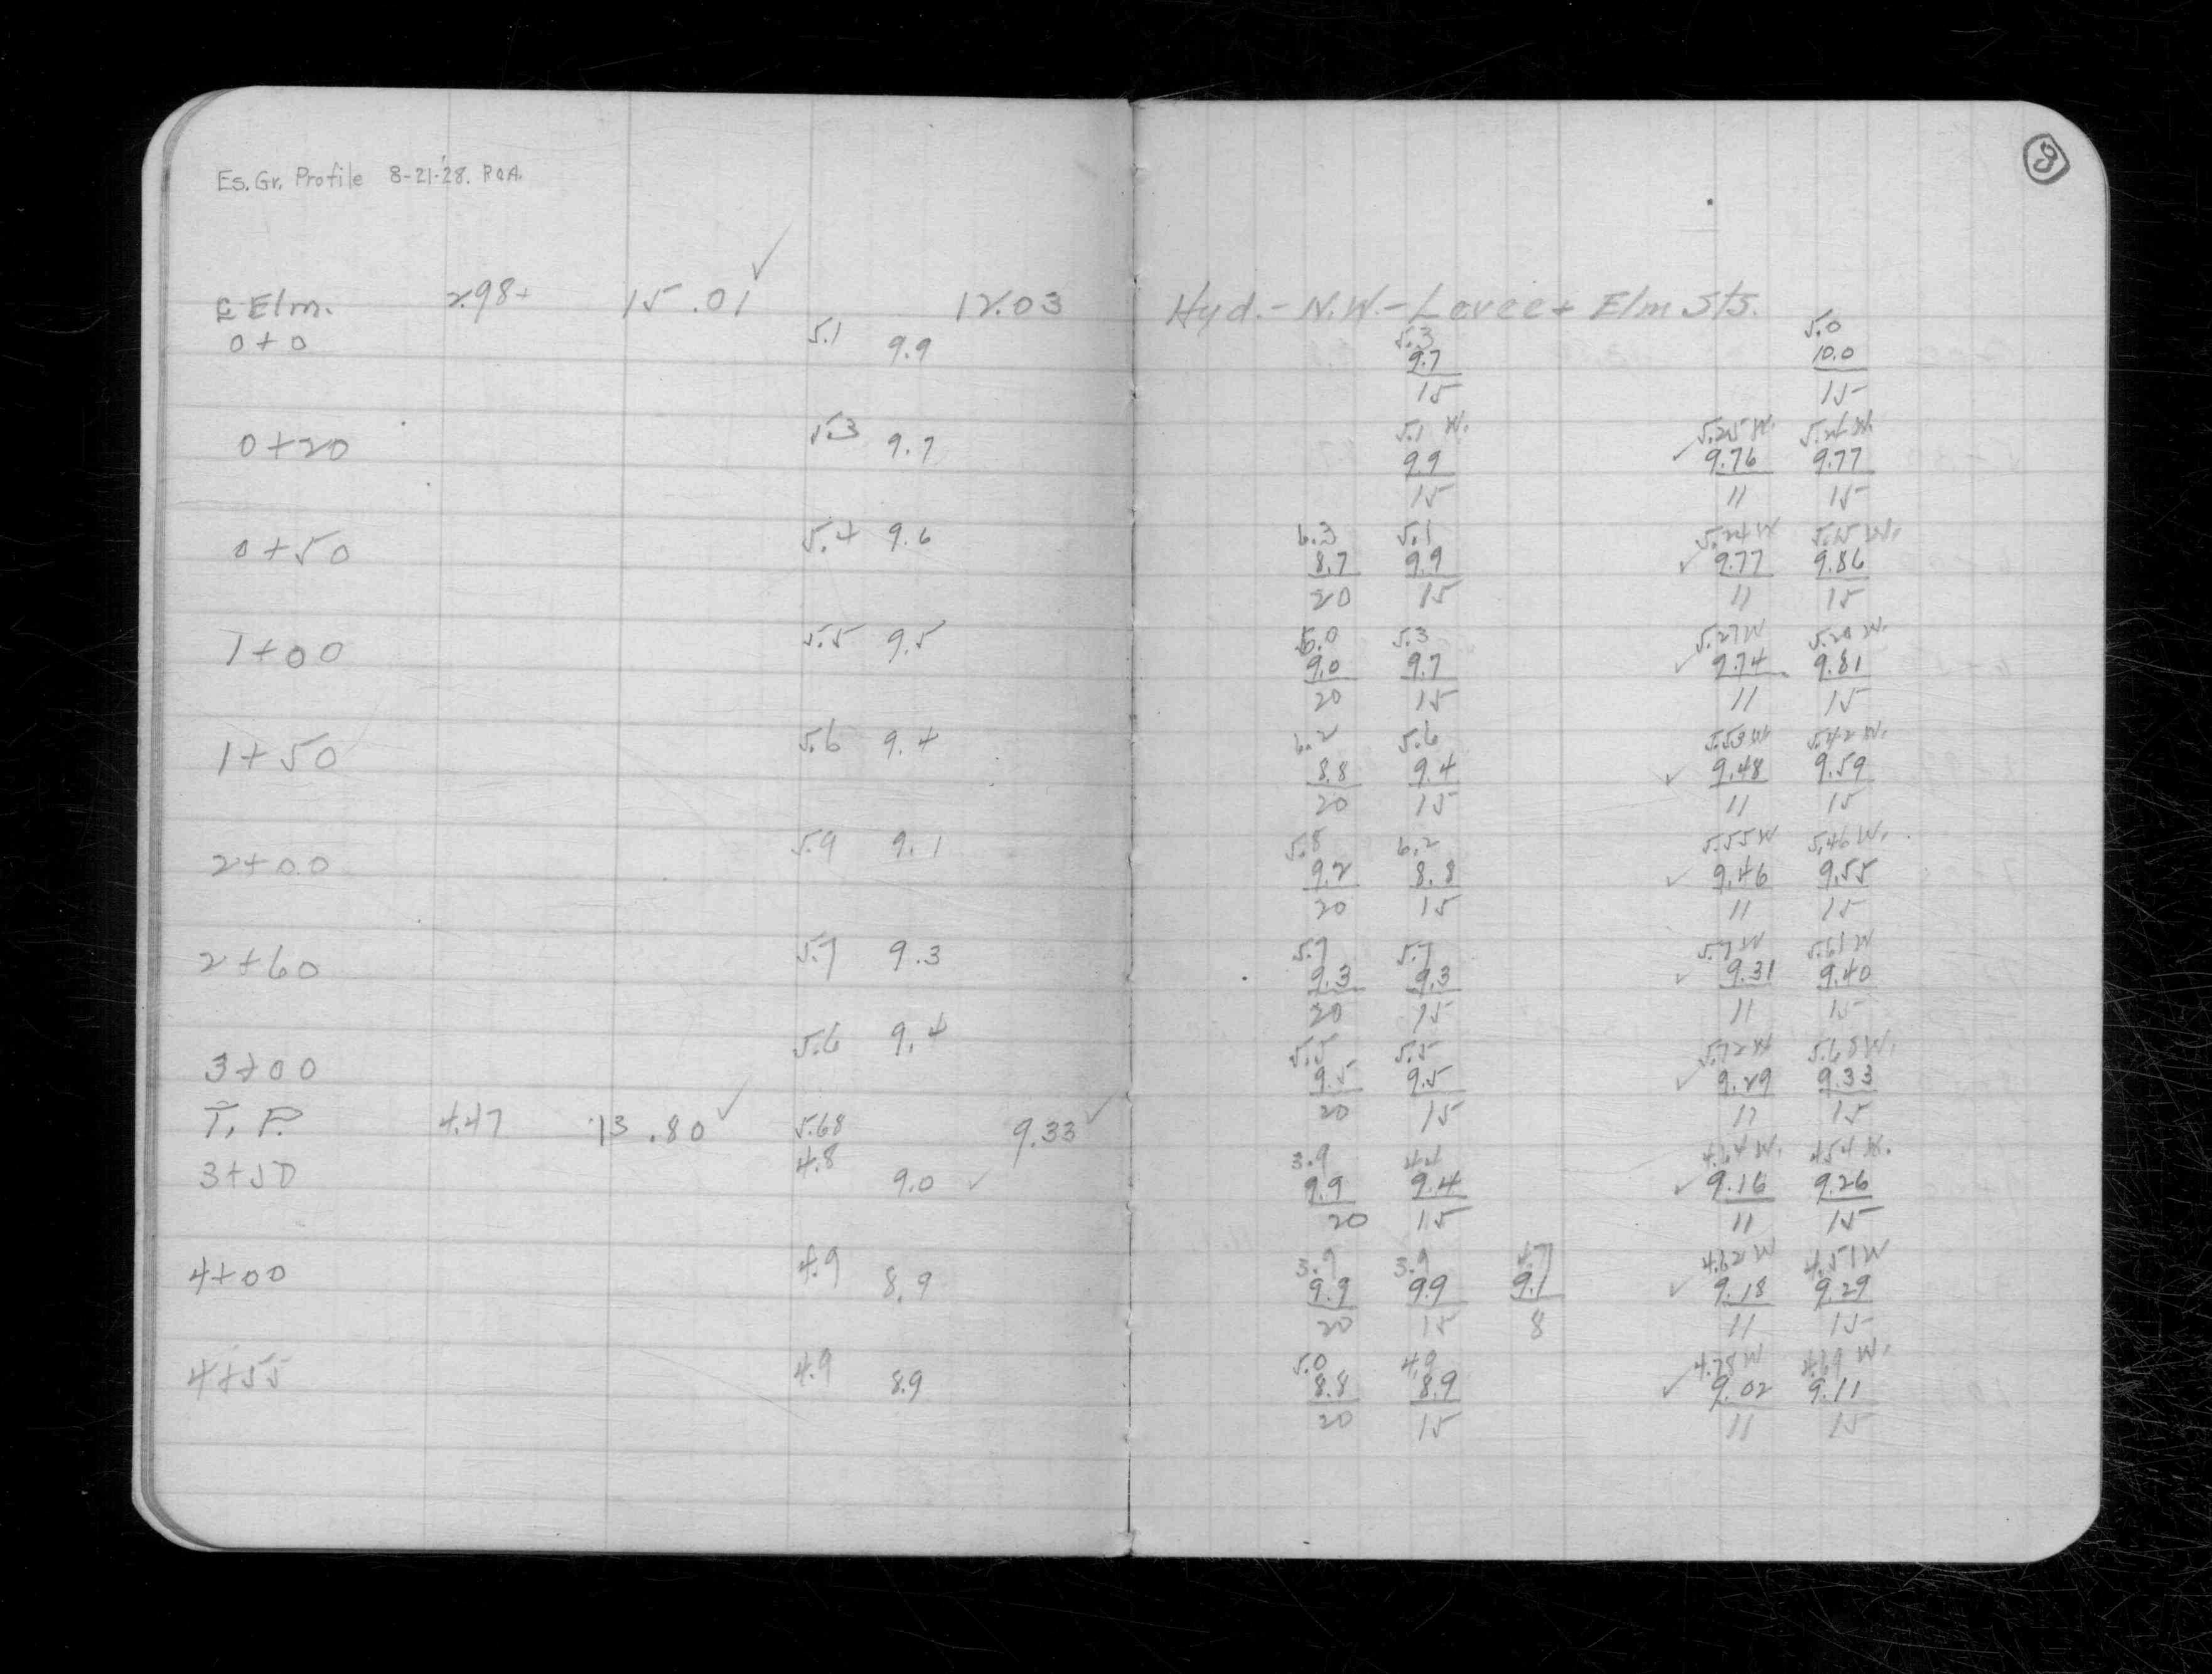 Es. Gr. Profile 8-21-'28. RQA.
8
℄ Elm. 2.98+ 15.01 ✓ 12.03 Hyd.- N.W.- Levee + Elm Sts.
0+0 5.1 9.9 5.3 5.0
9.7 10.0
15 15
0+20 5.3 9.7 5.1 W. 5.25 W. 5.24 W.
9.9 ✓ 9.76 9.77
15 11 15
0+50 5.4 9.6 6.3 5.1 5.24 W 5.15 W.
8.7 9.9 ✓ 9.77 9.86
20 15 11 15
1+00 5.5 9.5 6.0 5.3 5.27 W 5.20 W.
9.0 9.7 ✓ 9.74 9.81
20 15 11 15
1+50 5.6 9.4 6.2 5.6 5.53 W. 5.42 W.
8.8 9.4 ✓ 9.48 9.59
20 15 11 15
2+00 5.9 9.1 5.8 6.2 5.55 W 5.46 W.
9.2 8.8 ✓ 9.46 9.55
20 15 11 15
2+60 5.7 9.3 5.7 5.7 5.7 W 5.61 W
9.3 9.3 ✓ 9.31 9.40
20 15 11 15
3+00 5.6 9.4 5.5 5.5 5.72 W 5.68 W.
9.5 9.5 ✓ 9.29 9.33
20 15 11 15
T. P. 4.47 13.80 ✓ 5.68 9.33 ✓
3+50 4.8 9.0 ✓ 3.9 4.4 4.64 W. 4.54 W.
9.9 9.4 ✓ 9.16 9.26
20 15 11 15
4+00 4.9 8.9 3.9 3.9 4.7 4.62 W 4.51 W
9.9 9.9 9.1 ✓ 9.18 9.29
20 15 8 11 15
4+55 4.9 8.9 5.0 4.9 4.78 W 4.69 W.
8.8 8.9 ✓ 9.02 9.11
20 15 11 15